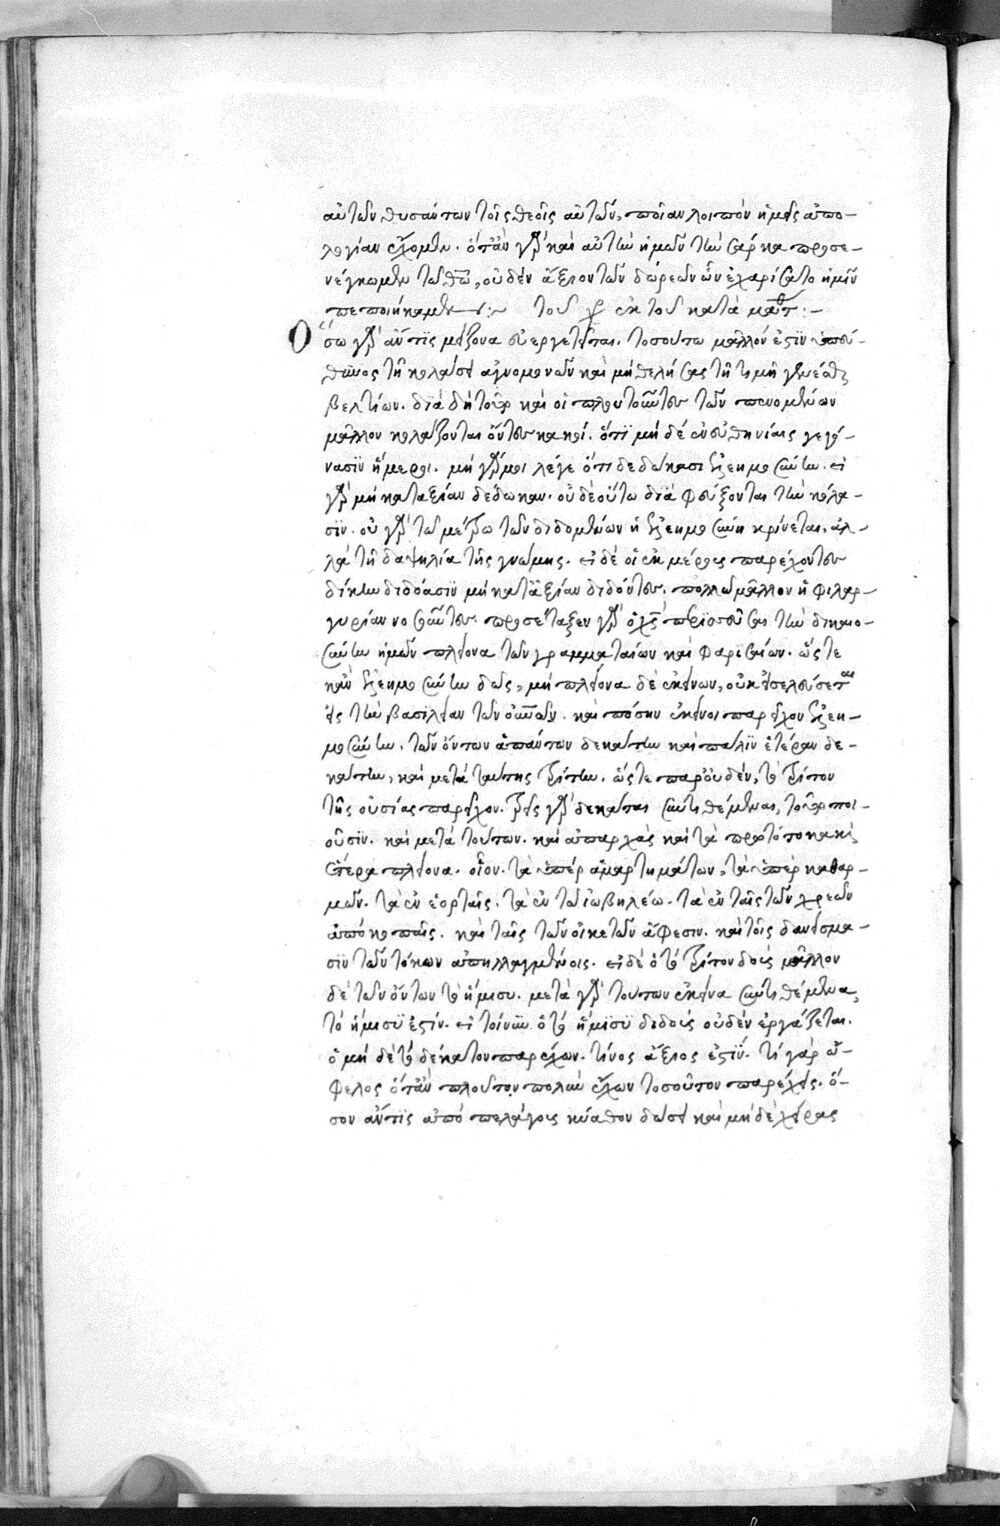 αὐτῶν θυσάντων τοῖς θεοῖς αὐτῶν, ποίαν λοιπὸν ἡμεῖς ἀπο-
λογίαν ἔχομεν. ὅταν γὰρ καὶ αὐτὴν ἡμῶν τὴν σάρκα προσε-
νέγκωμεν τῷ θῶ, οὐδὲν ἄξιον τῶν δωρεῶν ὧν ἐχαρίσατο ἡμῖν
πεποιήκαμεν :~ τοῦ χρ ἐκ τοῦ κατὰ ματθ :-
Ὅσω γὰρ ἄν τις μείζονα εὐεργετῆται. τοσούτω μᾶλλόν ἐστιν ὑπεύ-
θυνος τῆ κολάσει ἀγνωμονῶν καὶ μὴ θελήσας τῆ τιμῆ γενέσθαι
βελτίων. διὰ δὴ τοῦτο καὶ οἱ πλουτοῦντες τῶν πενομένων
μᾶλλον κολάζονται ὄντες κακοί. ὅτι μὴ δὲ ἐν εὐθηνίαις γεγό-
νασϊν ἥμεροι. μὴ γάρ μοι λέγε ὅτι δεδώκασι ἐλεημοσύνην. εἰ
γὰρ μὴ κατ' ἀξίαν δέδωκαν. οὐδὲ οὕτω διαφεύξονται τὴν κόλα-
σϊν. οὐ γὰρ τῶ μέτρω τῶν διδομένων ἡ ἐλεημοσύνη κρίνεται, ἀλ-
λὰ τῆ δαψιλία τῆς γνώμης. εἰ δὲ οἱ ἐκ μέρους παρέχοντες
δίκην διδόασϊν μὴ κατ' ἀξίαν διδόντες. πολλῶ μᾶλλον ἡ φιλαρ-
γυρίαν νοσοῦντες. προσέταξεν γὰρ ὁ χς περισσεῦσαι τὴν δικαιο-
σύνην ἡμῶν πλείονα τῶν γραμματαίων καὶ φαρισαίων. ὥστε
κἂν ἐλεημοσύνην δῶς, μὴ πλείονα δὲ ἐκείνων, οὐκ εἰσελεύσεται
εἰς τὴν βασιλείαν τῶν οὐνῶν. καὶ πόσην ἐκεῖνοι παρεῖχον ἐλεη-
μοσύνην. τῶν ὄντων ἁπάντων δεκάτην καὶ πάλϊν ἑτέραν δε-
κάτην, καὶ μετὰ ταύτης τρίτην. ὥστε παρ' οὐδὲν, τὸ τρίτον
τῆς οὐσίας παρεῖχον. τρεῖς γὰρ δεκάται συντιθέμεναι, τοῦτο ποι-
οῦσϊν. καὶ μετὰ τούτων. καὶ ἀπαρχὰς καὶ τὰ πρωτότοκα καὶ
ἕτερα πλείονα. οἷον. τὰ ὑπὲρ ἁμαρτημάτων, τὰ ὑπὲρ καθαρ-
μῶν. τὰ ἐν ἑορταῖς. τὰ ἐν τῶ ἰωβηλέω. τὰ ἐν ταῖς τῶν χρεῶν
ἀποκοπαῖς. καὶ ταῖς τῶν οἰκετῶν ἄφεσιν. καὶ τοῖς δανείσμα-
σϊν τῶν τόκων ἀπηλλαγμένοις. εἰ δὲ ὁ τὸ τρίτον δοὺς μᾶλλον
δὲ τῶν ὄντων τὸ ἥμισυ. μετὰ γὰρ τούτων ἐκεῖνα συντιθέμενα,
τὸ ἥμισϋ ἐστίν. εἰ τοίνυν ὁ τὸ ἥμϊσϋ διδοὺς οὐδὲν ἐργάζεται.
ὁ μὴ δὲ τὸ δέκατον παρέχων. τίνος ἄξιος ἐστϊν. τί γὰρ ὄ-
φελος ὅταν πλοῦτον πολὺν ἔχων τοσοῦτον παρέχεις. ὅ-
σον ἄν τϊς ἀπὸ πελάγους κύαθον δώσει καὶ μὴ δὲ χήρας